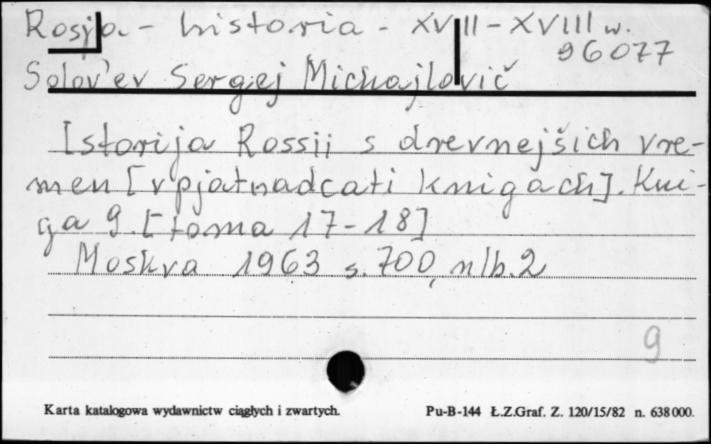 Rosja - historia - XVIII - XVIII w.
96077
Solov'ev Sergej Michajlovič
Istorija Rossii s drevnejšich vre-
men [v pjatnadcati knigach]. Kni-
ga 9. [toma 17-18]
Moskva 1963 s. 700, nlb. 2
9
Karta katalogowa wydawnictw ciągłych i zwartych.
Pu-B-144 Ł.Z.Graf. Z. 120/15/82 n. 638000.